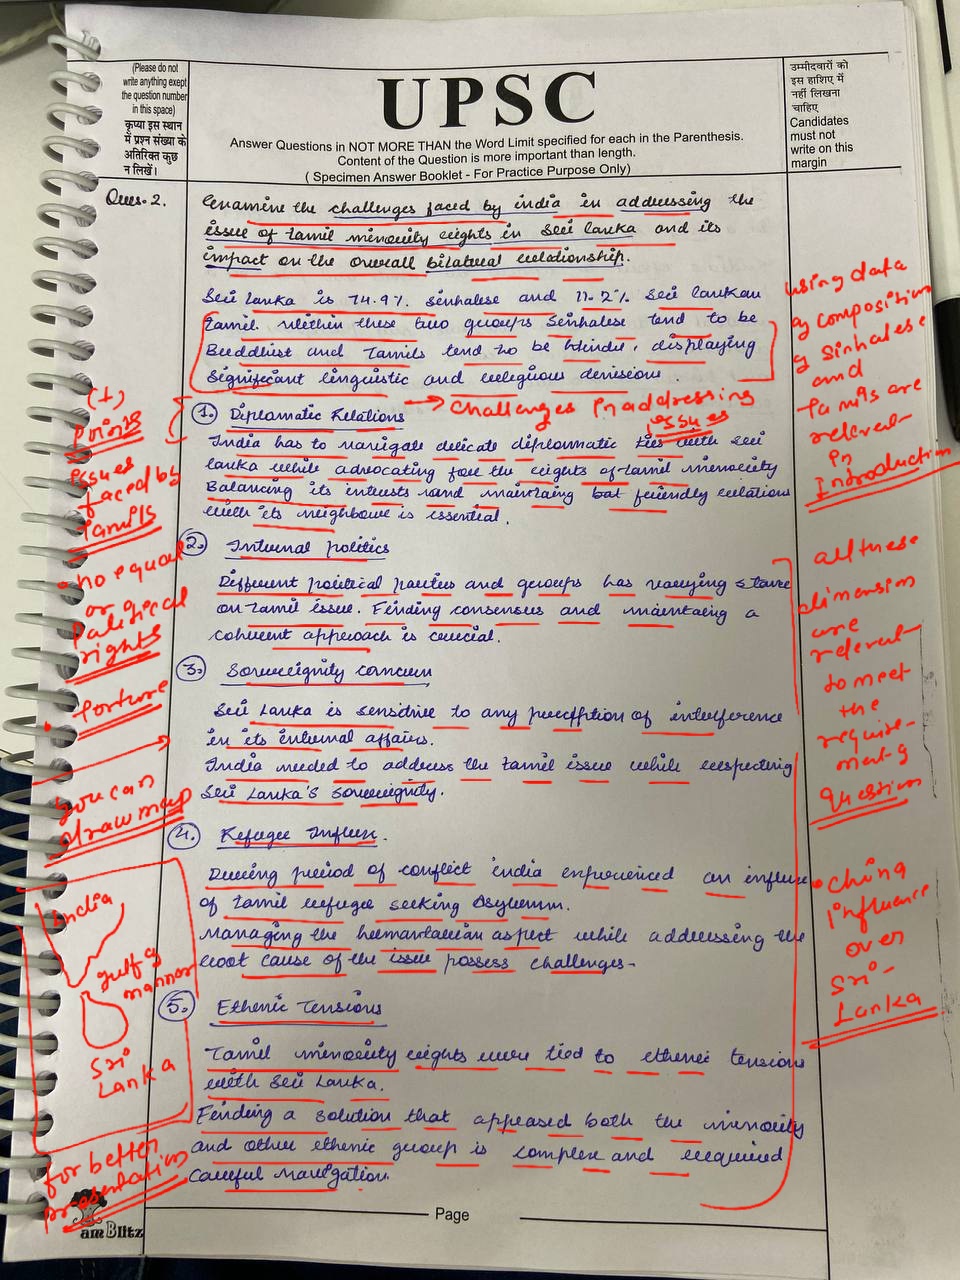 (Please do not
write anything exept
the question number
in this space)
कृप्या इस स्थान
में प्रश्न संख्या के
अतिरिक्त कुछ
न लिखें।
UPSC
Answer Questions in NOT MORE THAN the Word Limit specified for each in the Parenthesis.
Content of the Question is more important than length.
( Specimen Answer Booklet - For Practice Purpose Only)
उम्मीदवारों को
इस हाशिए में
नहीं लिखना
चाहिए
Candidates
must not
write on this
margin
Ques-2.
Examine the challenges faced by india in addressing the
issue of tamil minority rights in Sri lanka and its
impact on the overall bilateral relationship.
Sri Lanka is 74.9% sinhalese and 11.2% Sri lankan
tamil. Within these two groups Sinhalese tend to be
Buddhist and Tamils tend to be Hindu, displaying
significant linguistic and religious division.
1. Diplomatic Relations
→ challenges in addressing
issues
India has to navigate delicate diplomatic ties with Sri
lanka while advocating for the rights of tamil minority
Balancing its intrests and maintaing bat friendly relations
with its neighbour is essential.
2. Internal politics
Different political parties and groups has varying stance
on tamil issue. Finding consensus and maintaing a
coherent approach is crucial.
3. Sovereignity concern
Sri Lanka is sensitive to any perception of interference
in its internal affairs.
India needed to address the tamil issue while respecting
Sri Lanka's sovereignity.
4. Refugee Influx.
During period of conflict india experienced an influx
of tamil refugee seeking asylumn.
Managing the humanitarian aspect while addressing the
root cause of the issue possess challenges-
5. Ethenic Tensions
Tamil minority rights were tied to ethenic tensions
with Sri Lanka.
Finding a solution that appeased both the minority
and other ethenic group is complex and required
careful navigation.
(+)
points
issues
faced by
Tamils
• no equal
or
political
rights
• torture
you can
draw map
India
gulf of
mannar
Sri
Lanka
for better
presentation
using data
of composition
of sinhalese
and
Tamils are
relevant
in
Introduction
all these
dimension
are
relevant
to meet
the
require-
ment of
question
• China
influence
over
Sri-
Lanka
am Blitz
Page